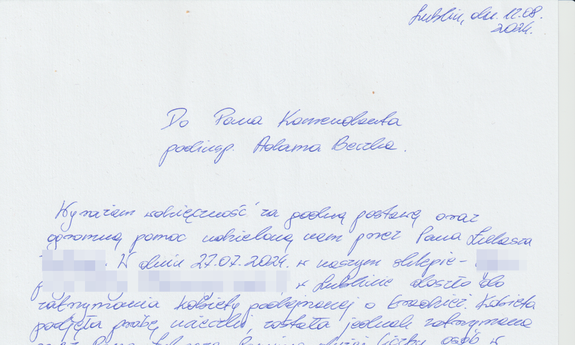 Lublin, dn. 12.08.
2024.
Do Pana Komendanta
podinsp. Adama
Wyrażam wdzięczność za godną postawę oraz
ogromną pomoc udzieloną nam przez Pana Łukasza
. W dniu 27.07.2024. w naszym sklepie -
w Lublinie doszło do
zatrzymania kobiety podejrzanej o kradzież. Kobieta
podjęła próbę ucieczki, została jednak zatrzymana
przez Pana Łukasza osób w